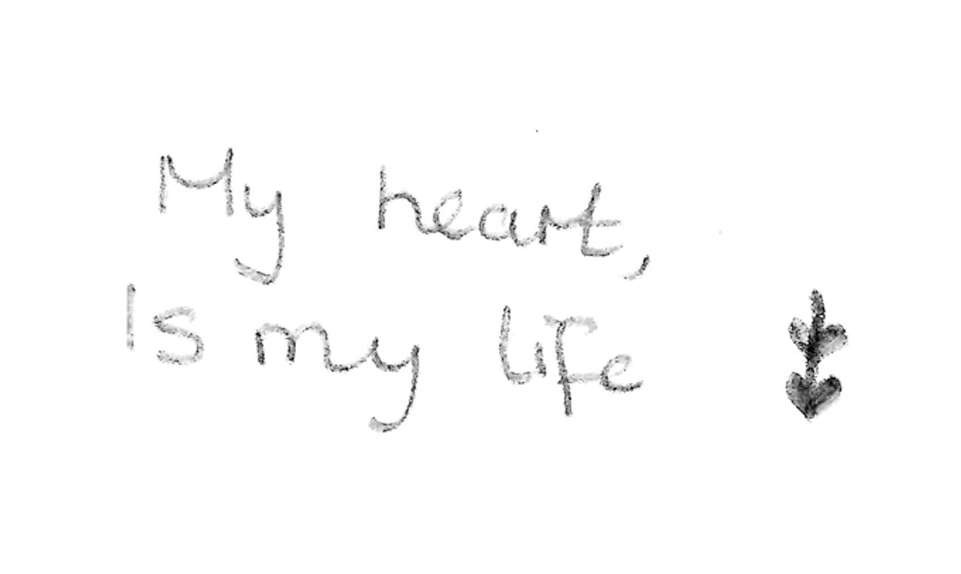 My heart,
Is my life